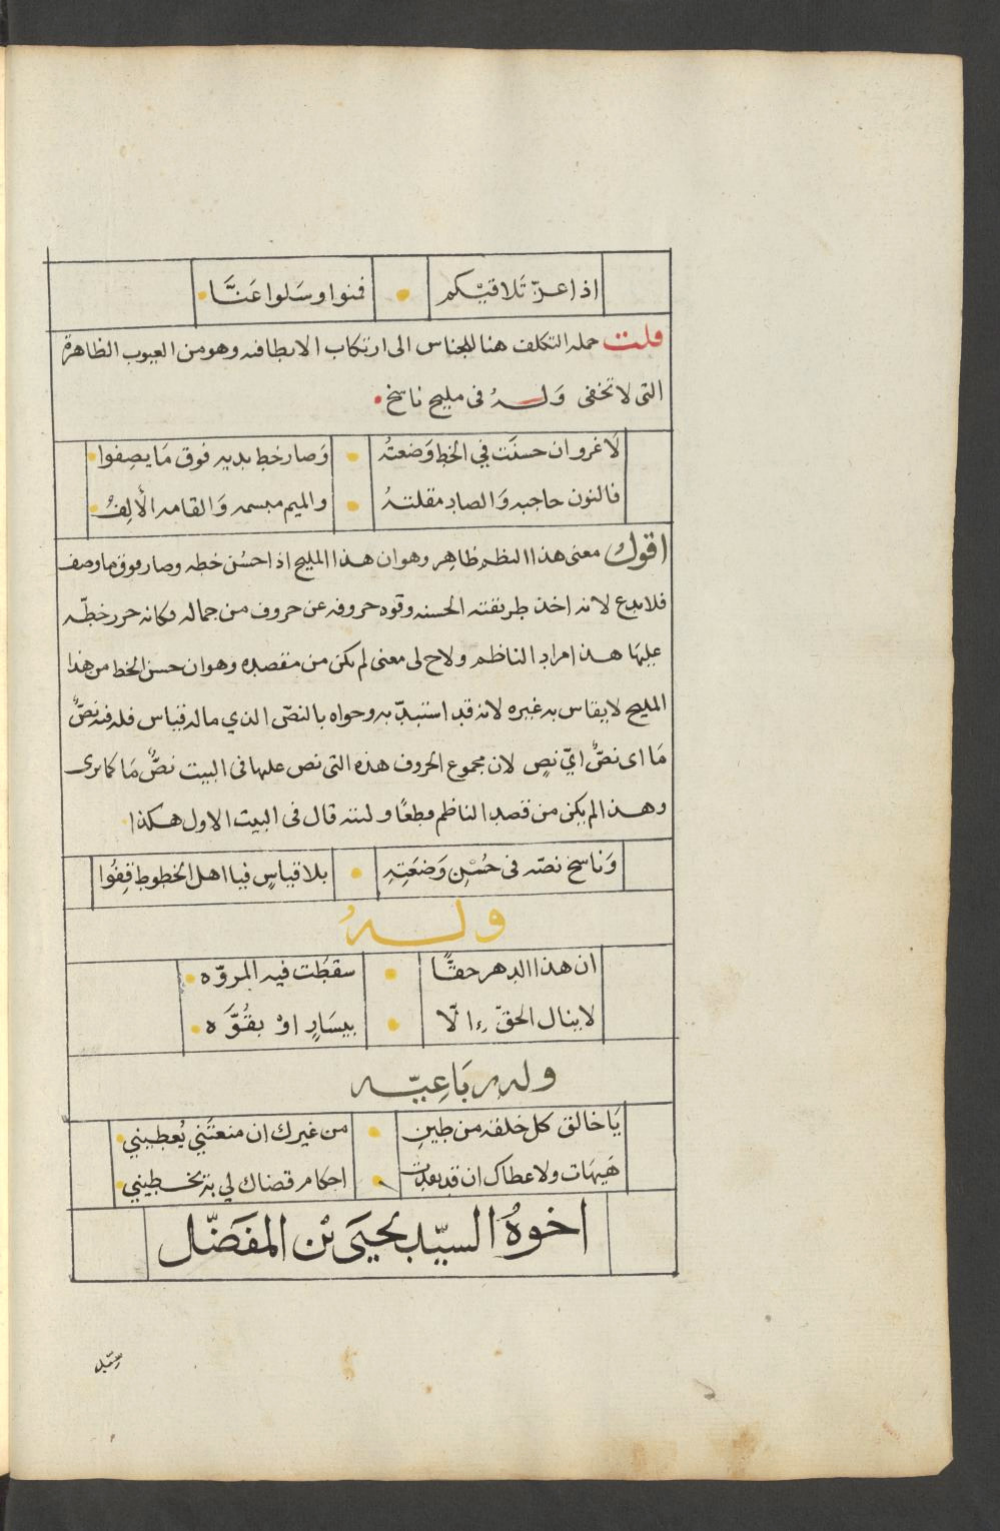 اذا عزّ تَلاقيْكم • فنوا وسَلوا عَنَّا
قلت حمله التكلف هنا للجناس الى ارتكاب الابطا فيه وهو من العيوب الظاهرة
التى لا تخفى وَلــهُ فى مليح ناسخ
لَا غرو ان حسنَت في الخط وَضعتُه • وَصار خط يديه فوق مَا يصِفوا
فالنون حاجبه وَالصاد مقلتهُ • والميم مبسمه وَالقامه الألِفُ
اقول معنى هذا النظم ظاهر وهو ان هذا المليح اذا حسُن خطه وصار فوق ما وصف
فلا بدع لانه اخذ طريقته الحسنه وقوه حروفه عن حروف من جماله وكانه حرر خطّه
عليها هذا مراد الناظم ولاح لى معنى لم يكن من مقصده وهو ان حسن الخط من هذا
المليح لا يقاس به غيره لانه قد استبدّ به وحواه بالنصّ الذي ماله قياس فله فيه نصٌّ
مَا اى نصٌّ ايّ نصٍ لان مجموع الحروف هذه التى نص عليها فى البيت نصٌّ مَا كا ترى
وهذا لم يكن من قصد الناظم قطعًا وليته قال فى البيت الاول هكذا
وَناسخ نصّه فى حُسْنِ وَضعَتِهِ • بلا قياسٍ فيا اهل الخطوط قِفُوا
ولــهُ
ان هذا الدهر حقًّا • سقطَت فيه المروّه
لا ينال الحقّ إلّا • بيسَارٍ اوْ بقُوَّه
وله رباعيّه
يَا خالق كل خلقه من طينِ • من غيرك ان منعتَني يُعطيني
هَيهَات ولا عطاك ان قدبعدت • احكام قضاك لي بتخطيني
اخوهُ السيّد يحيَى بْن المفَضّل